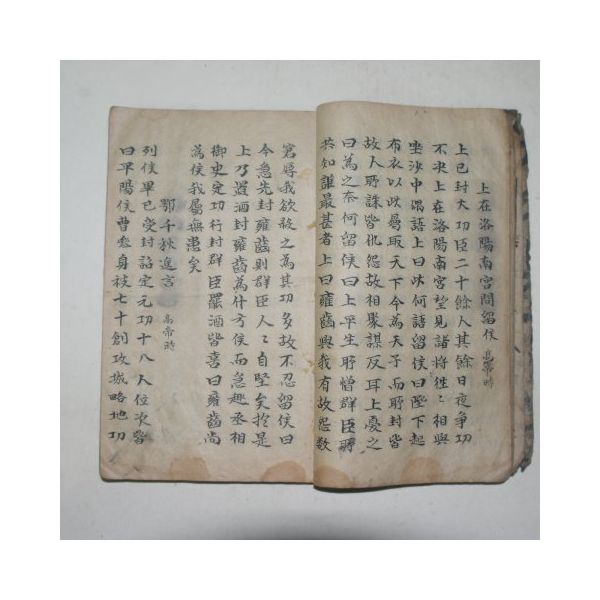 上在洛陽南宮問留侯 高帝時
上已封大功臣二十餘人其餘日夜爭功
不决上在洛陽南宮望見諸將往〻相與
坐沙中偶語上曰此何語留侯曰陛下起
布衣以此屬取天下今為天子而所封皆
故人所誅皆仇怨故相聚謀反耳上憂之
曰為之奈何留侯曰上平生所憎群臣所
共知誰最甚者上曰雍齒與我有故怨數
窘辱我欲殺之為其功多故不忍留侯曰
今急先封雍齒則群臣人〻自堅矣於是
上乃置酒封雍齒為什方侯而急趣丞相
御史定功行封群臣罷酒皆喜曰雍齒尚
為侯我屬無患矣
鄂千秋進言 高帝時
列侯畢已受封詔定元功十八人位次皆
曰平陽侯曹參身被七十創攻城略地功